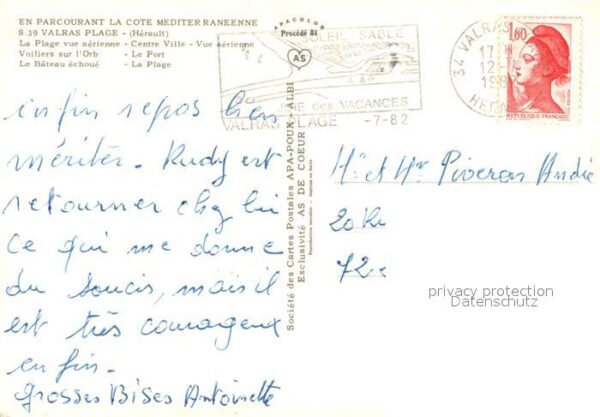 EN PARCOURANT LA COTE MEDITERRANEENNE
S.39 VALRAS PLAGE - (Hérault)
La Plage vue aérienne - Centre Ville - Vue aérienne
Voiliers sur l'Orb - Le Port
Le Bâteau échoué - La Plage
APACOLOR
Procédé 84
AS
SOLEIL SABLE
LAC
DES VACANCES
VALRAS PLAGE -7-82
34 VALRAS
17
12-
1,60
REPUBLIQUE FRANCAISE
Société des Cartes Postales APA-POUX - ALBI
Exclusivité AS DE COEUR
enfin repos bien
mériter. Rudy est
retourner chez lui
ce qui me donne
du soucis, mais il
est très courageux
enfin.
Grosses Bises Antoinette
Mme et Mr André
privacy protection
Datenschutz